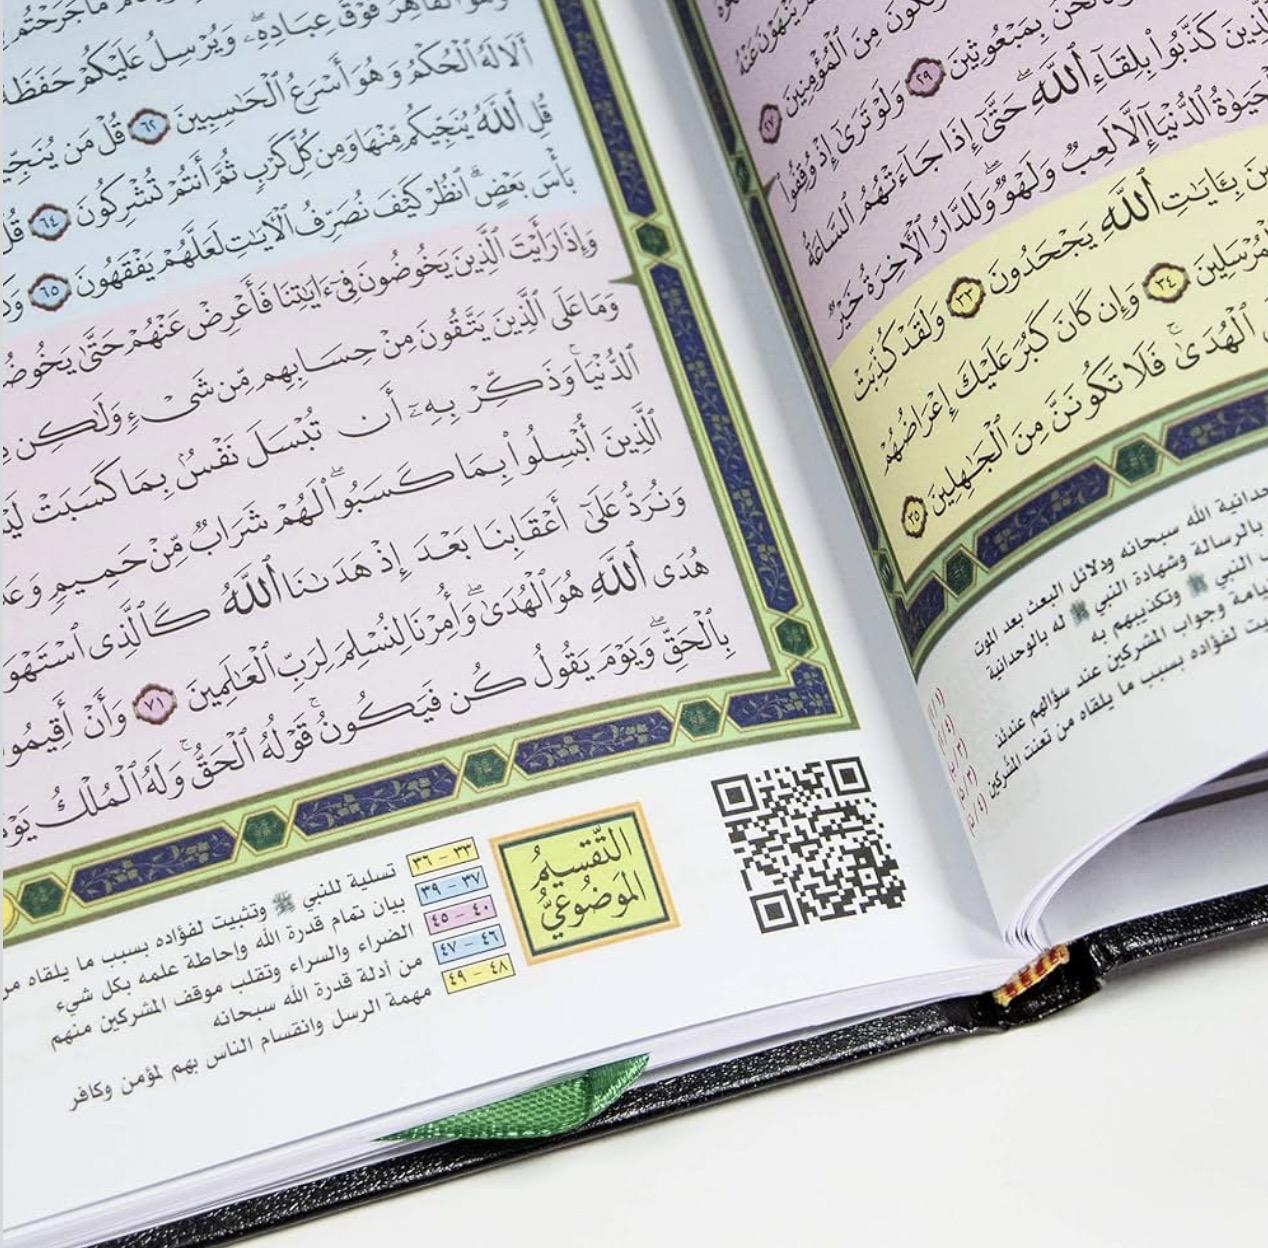 يَنْهَوْنَ عَنْهُ
مِنَ ٱلْمُؤْمِنِينَ ٢٧
نَحْنُ بِمَبْعُوثِينَ ٢٩ وَلَوْ تَرَىٰٓ إِذْ وُقِفُوا۟
كَذَّبُوا۟ بِلِقَآءِ ٱللَّهِ ۖ حَتَّىٰٓ إِذَا جَآءَتْهُمُ ٱلسَّاعَةُ
ٱلدُّنْيَآ إِلَّا لَعِبٌ وَلَهْوٌ ۖ وَلَلدَّارُ ٱلْءَاخِرَةُ خَيْرٌ
بِـَٔايَٰتِ ٱللَّهِ يَجْحَدُونَ ٣٣ وَلَقَدْ كُذِّبَتْ
ٱلْمُرْسَلِينَ ٣٤ وَإِن كَانَ كَبُرَ عَلَيْكَ إِعْرَاضُهُمْ
ٱلْهُدَىٰ ۚ فَلَا تَكُونَنَّ مِنَ ٱلْجَٰهِلِينَ ٣٥
الله سبحانه ودلائل البعث بعد الموت
بالرسالة وشهادة النبي ﷺ له بالوحدانية
النبي ﷺ وتكذيبهم به
وجواب المشركين عند سؤالهم عندئذ
لفؤاده بسبب ما يلقاه من تعنت المشركين
وَهُوَ ٱلْقَاهِرُ فَوْقَ عِبَادِهِۦ ۖ وَيُرْسِلُ عَلَيْكُمْ حَفَظَةً
أَلَا لَهُ ٱلْحُكْمُ وَهُوَ أَسْرَعُ ٱلْحَٰسِبِينَ ٦٢ قُلْ مَن
قُلِ ٱللَّهُ يُنَجِّيكُم مِّنْهَا وَمِن كُلِّ كَرْبٍ ثُمَّ أَنتُمْ تُشْرِكُونَ ٦٤
بَأْسَ بَعْضٍ ۗ ٱنظُرْ كَيْفَ نُصَرِّفُ ٱلْءَايَٰتِ لَعَلَّهُمْ يَفْقَهُونَ ٦٥
وَإِذَا رَأَيْتَ ٱلَّذِينَ يَخُوضُونَ فِىٓ ءَايَٰتِنَا فَأَعْرِضْ عَنْهُمْ حَتَّىٰ
وَمَا عَلَى ٱلَّذِينَ يَتَّقُونَ مِنْ حِسَابِهِم مِّن شَىْءٍ وَلَٰكِن
ٱلدُّنْيَا ۚ وَذَكِّرْ بِهِۦٓ أَن تُبْسَلَ نَفْسٌۢ بِمَا كَسَبَتْ
ٱلَّذِينَ أُبْسِلُوا۟ بِمَا كَسَبُوا۟ ۖ لَهُمْ شَرَابٌ مِّنْ حَمِيمٍ
وَنُرَدُّ عَلَىٰٓ أَعْقَابِنَا بَعْدَ إِذْ هَدَىٰنَا ٱللَّهُ كَٱلَّذِى
هُدَى ٱللَّهِ هُوَ ٱلْهُدَىٰ ۖ وَأُمِرْنَا لِنُسْلِمَ لِرَبِّ ٱلْعَٰلَمِينَ ٧١ وَأَنْ
بِٱلْحَقِّ ۖ وَيَوْمَ يَقُولُ كُن فَيَكُونُ ۚ قَوْلُهُ ٱلْحَقُّ ۚ وَلَهُ ٱلْمُلْكُ
التَّقسِيمُ
المَوضُوعِيُّ
٣٣ - ٣٦ تسلية للنبي ﷺ وتثبيت لفؤاده بسبب ما يلقاه
٣٧ - ٣٩ بيان تمام قدرة الله وإحاطة علمه بكل شيء
٤٠ - ٤٥ الضراء والسراء وتقلب موقف المشركين منهم
٤٦ - ٤٧ من أدلة قدرة الله سبحانه
٤٨ - ٤٩ مهمة الرسل وانقسام الناس بهم لمؤمن وكافر